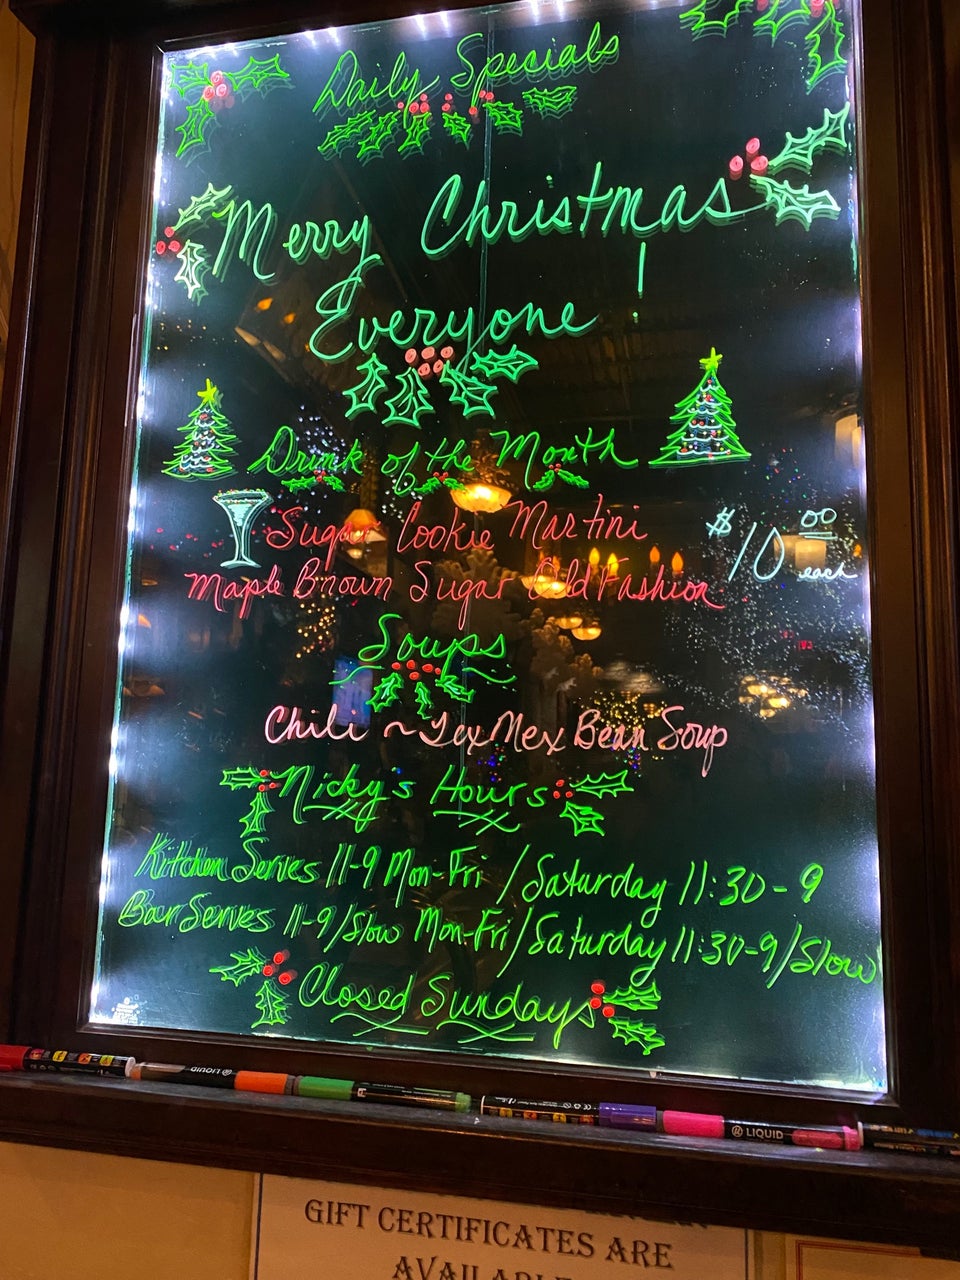 Daily Specials
Merry Christmas
Everyone !
Drink of the Month
Sugar Cookie Martini
Maple Brown Sugar Old Fashion
$10.00 each
Soups
Chili ~ Tex Mex Bean Soup
Nicky's Hours
Kitchen Serves 11-9 Mon-Fri / Saturday 11:30-9
Bar Serves 11-9/Slow Mon-Fri/Saturday 11:30-9/Slow
Closed Sundays
LIQUID
LIQUID
GIFT CERTIFICATES ARE
AVAILABLE